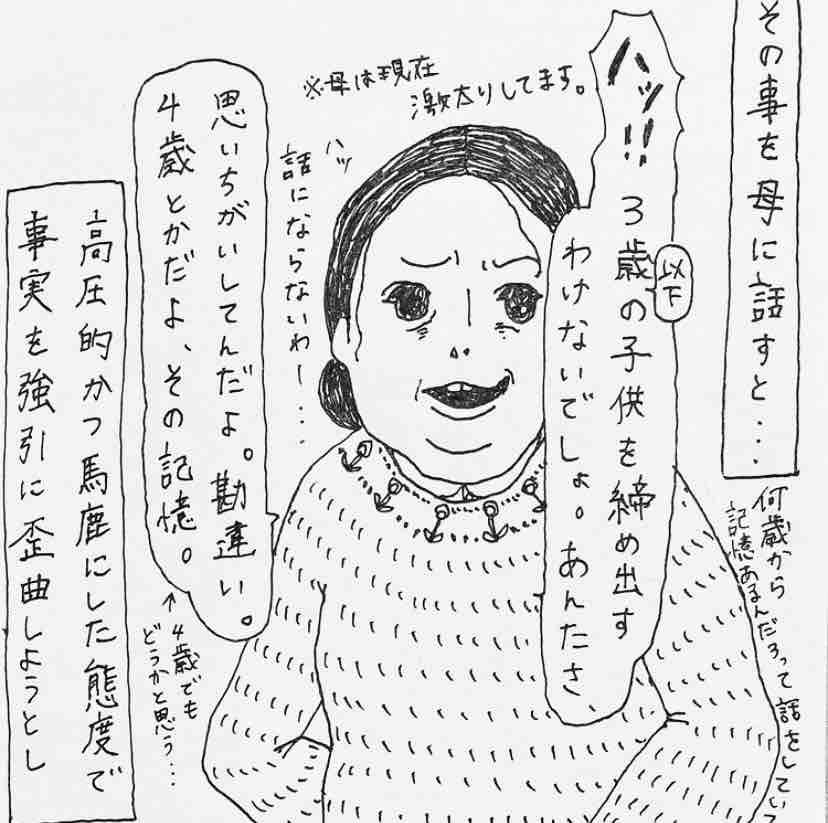 その事を母に話すと・・・
何歳から
記憶あるんだろって話をしていて
ハッ!!3歳の子供を締め出す
以下
わけないでしょ。あんたさ
※母は現在
激太りしてます。
ハッ
話にならないわー・・・
思いちがいしてんだよ。勘違い。
4歳とかだよ、その記憶。
↑4歳でも
どうかと思う・・・
高圧的かつ馬鹿にした態度で
事実を強引に歪曲しようとし